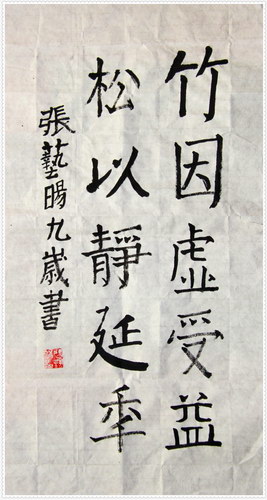 竹因虛受益
松以靜延年
張藝暘九歲書